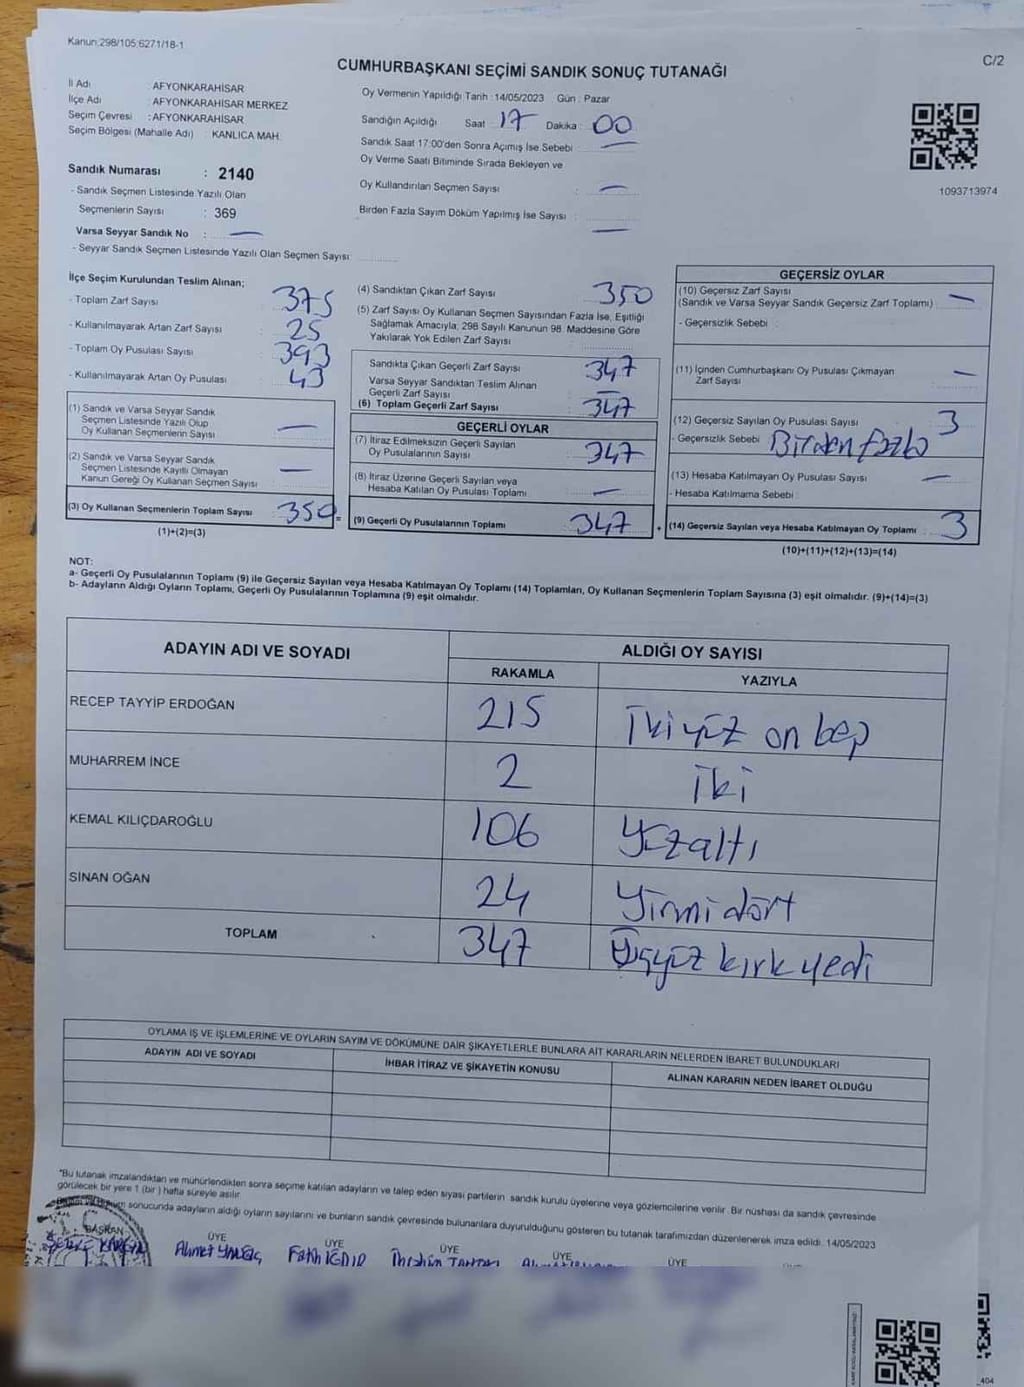 Kanun:298/105;6271/18-1
C/2
CUMHURBAŞKANI SEÇİMİ SANDIK SONUÇ TUTANAĞI
İl Adı : AFYONKARAHİSAR
İlçe Adı : AFYONKARAHİSAR MERKEZ
Seçim Çevresi : AFYONKARAHİSAR
Seçim Bölgesi (Mahalle Adı) : KANLICA MAH.
Oy Vermenin Yapıldığı Tarih : 14/05/2023 Gün : Pazar
Sandığın Açıldığı Saat : 17 Dakika : 00
Sandık Saat 17:00'den Sonra Açımış İse Sebebi : —
Oy Verme Saati Bitiminde Sırada Bekleyen ve
Oy Kullandırılan Seçmen Sayısı : —
Birden Fazla Sayım Döküm Yapılmış İse Sayısı : —
1093713974
Sandık Numarası : 2140
- Sandık Seçmen Listesinde Yazılı Olan
Seçmenlerin Sayısı : 369
Varsa Seyyar Sandık No : —
- Seyyar Sandık Seçmen Listesinde Yazılı Olan Seçmen Sayısı:
İlçe Seçim Kurulundan Teslim Alınan;
- Toplam Zarf Sayısı : 375
- Kullanılmayarak Artan Zarf Sayısı : 25
- Toplam Oy Pusulası Sayısı : 393
- Kullanılmayarak Artan Oy Pusulası : 43
(1) Sandık ve Varsa Seyyar Sandık
Seçmen Listesinde Yazılı Olup
Oy Kullanan Seçmenlerin Sayısı : —
(2) Sandık ve Varsa Seyyar Sandık
Seçmen Listesinde Kayıtlı Olmayan
Kanun Gereği Oy Kullanan Seçmen Sayısı : —
(3) Oy Kullanan Seçmenlerin Toplam Sayısı : 350 =
(1)+(2)=(3)
(4) Sandıktan Çıkan Zarf Sayısı : 350
(5) Zarf Sayısı Oy Kullanan Seçmen Sayısından Fazla İse, Eşitliği
Sağlamak Amacıyla; 298 Sayılı Kanunun 98. Maddesine Göre
Yakılarak Yok Edilen Zarf Sayısı :
Sandıkta Çıkan Geçerli Zarf Sayısı : 347
Varsa Seyyar Sandıktan Teslim Alınan
Geçerli Zarf Sayısı : —
(6) Toplam Geçerli Zarf Sayısı : 347
GEÇERLİ OYLAR
(7) İtiraz Edilmeksizin Geçerli Sayılan
Oy Pusulalarının Sayısı : 347
(8) İtiraz Üzerine Geçerli Sayılan veya
Hesaba Katılan Oy Pusulası Toplamı : —
(9) Geçerli Oy Pusulalarının Toplamı : 347 +
GEÇERSİZ OYLAR
(10) Geçersiz Zarf Sayısı
(Sandık ve Varsa Seyyar Sandık Geçersiz Zarf Toplamı) : —
- Geçersizlik Sebebi :
(11) İçinden Cumhurbaşkanı Oy Pusulası Çıkmayan
Zarf Sayısı : —
(12) Geçersiz Sayılan Oy Pusulası Sayısı : 3
- Geçersizlik Sebebi : Birden fazla
(13) Hesaba Katılmayan Oy Pusulası Sayısı : —
- Hesaba Katılmama Sebebi :
(14) Geçersiz Sayılan veya Hesaba Katılmayan Oy Toplamı : 3
(10)+(11)+(12)+(13)=(14)
NOT:
a- Geçerli Oy Pusulalarının Toplamı (9) ile Geçersiz Sayılan veya Hesaba Katılmayan Oy Toplamı (14) Toplamları, Oy Kullanan Seçmenlerin Toplam Sayısına (3) eşit olmalıdır. (9)+(14)=(3)
b- Adayların Aldığı Oyların Toplamı, Geçerli Oy Pusulalarının Toplamına (9) eşit olmalıdır.
ADAYIN ADI VE SOYADI ALDIĞI OY SAYISI
RAKAMLA YAZIYLA
RECEP TAYYİP ERDOĞAN 215 İkiyüz on beş
MUHARREM İNCE 2 İki
KEMAL KILIÇDAROĞLU 106 Yüzaltı
SİNAN OĞAN 24 Yirmidört
TOPLAM 347 Üçyüz kırk yedi
OYLAMA İŞ VE İŞLEMLERİNE VE OYLARIN SAYIM VE DÖKÜMÜNE DAİR ŞİKAYETLERLE BUNLARA AİT KARARLARIN NELERDEN İBARET BULUNDUKLARI
ADAYIN ADI VE SOYADI İHBAR İTİRAZ VE ŞİKAYETİN KONUSU ALINAN KARARIN NEDEN İBARET OLDUĞU
*Bu tutanak imzalandıktan ve mühürlendikten sonra seçime katılan adayların ve talep eden siyasi partilerin sandık kurulu üyelerine veya gözlemcilerine verilir. Bir nüshası da sandık çevresinde
görülecek bir yere 1 (bir) hafta süreyle asılır.
sonucunda adayların aldığı oyların sayılarını ve bunların sandık çevresinde bulunanlara duyurulduğunu gösteren bu tutanak tarafımızdan düzenlenerek imza edildi. 14/05/2023
BAŞKAN ÜYE ÜYE ÜYE ÜYE ÜYE
Ahmet Fatih IĞDIR İbrahim
404